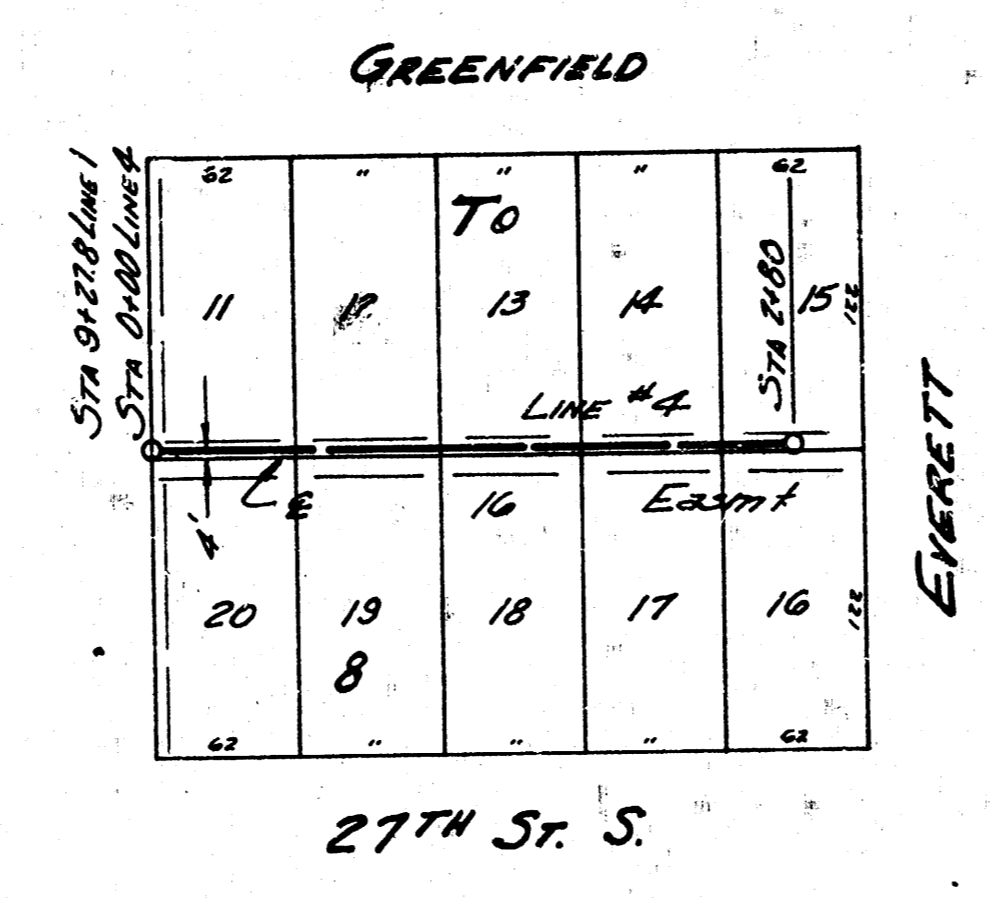 GREENFIELD
STA 9+27.8 LINE 1
STA 0+00 LINE 4
62 " " " 62
TO
11 12 13 14 15
122
STA 2+80
LINE #4
℄
16' Easmt
4'
20 19 18 17 16
122
8
62 " " " 62
EVERETT
27TH ST. S.